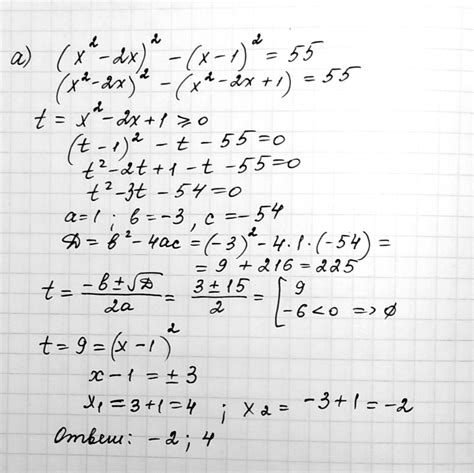 а) (x² - 2x)² - (x - 1)² = 55
(x² - 2x)² - (x² - 2x + 1) = 55
t = x² - 2x + 1 ⩾ 0
(t - 1)² - t - 55 = 0
t² - 2t + 1 - t - 55 = 0
t² - 3t - 54 = 0
a = 1 ; b = -3 , c = -54
D = b² - 4ac = (-3)² - 4 · 1 · (-54) =
= 9 + 216 = 225
t = (-b ± √D)/(2a) = (3 ± 15)/2 = [ 9
-6 < 0 => ∅
t = 9 = (x - 1)²
x - 1 = ± 3
x₁ = 3 + 1 = 4 ; x₂ = -3 + 1 = -2
Ответ: -2 ; 4